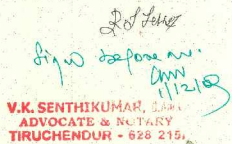 Sign before me.
1/12/03
V.K. SENTHIKUMAR,
ADVOCATE & NOTARY
TIRUCHENDUR - 628 215.